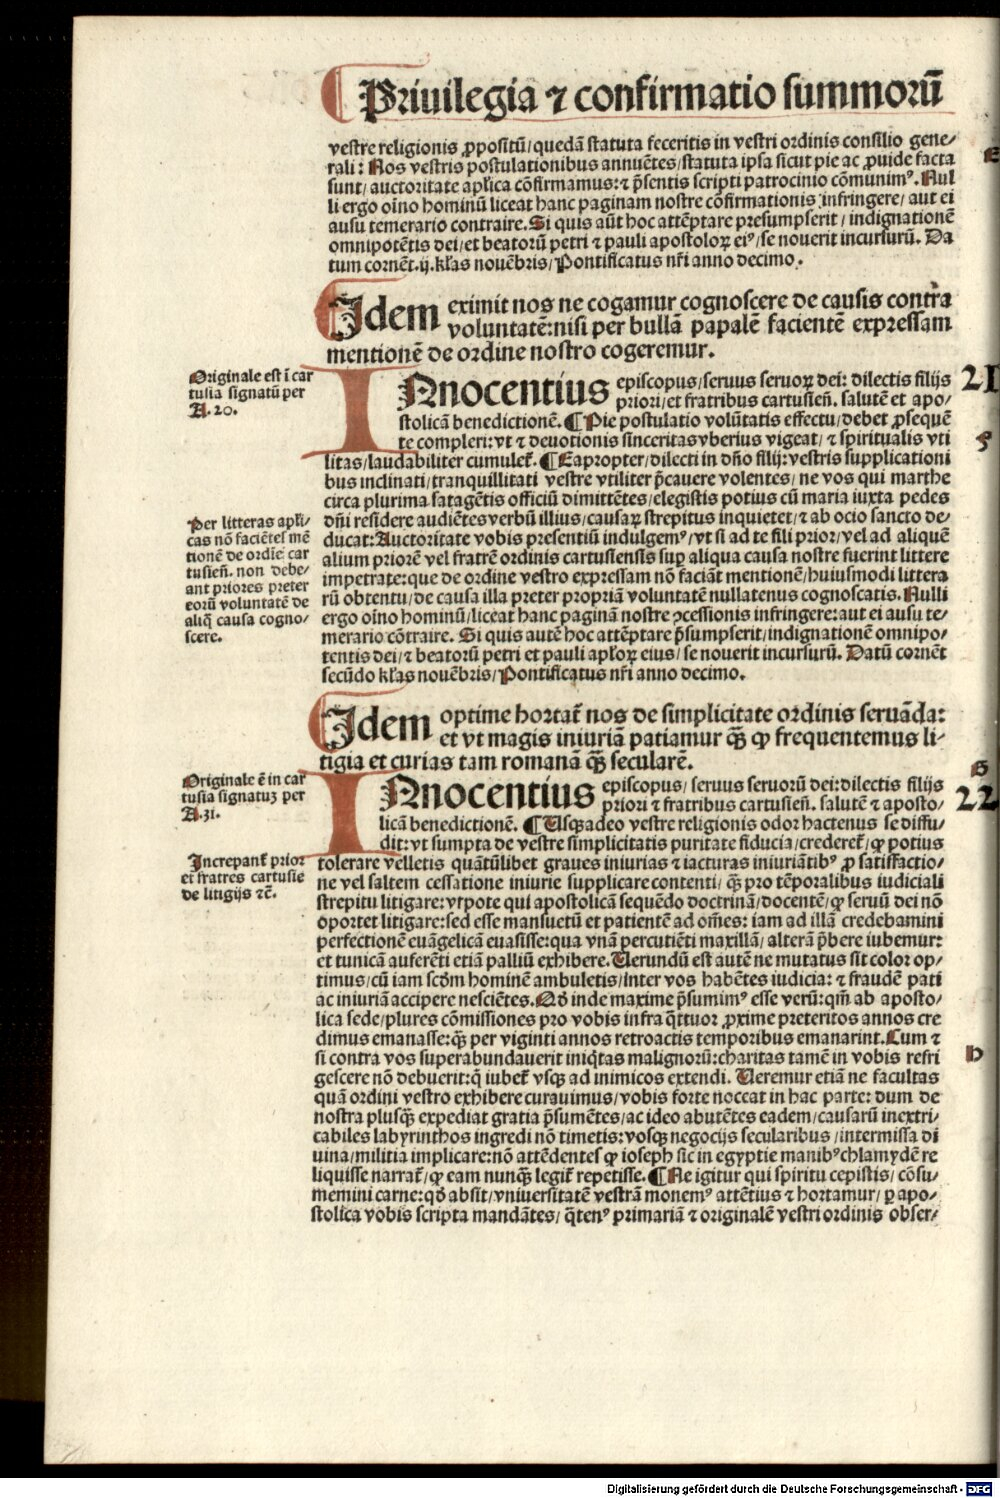 Priuilegia ⁊ confirmatio summorū
vestre religionis ꝓpositū/ quedā statuta feceritis in vestri ordinis consilio gene⸗
rali: Nos vestris postulationibus annuētes/ statuta ipsa sicut pie ac ꝓuide facta
sunt/ auctoritate apl̄ica cōfirmamus: ⁊ p̄sentis scripti patrocinio cōmunimꝰ. Nul
li ergo oīno hominū liceat hanc paginam nostre cōfirmationis infringere/ aut ei
ausu temerario contraire. Si quis aūt hoc attēptare presumpserit/ indignationē
omnipotētis dei/ et beatorū petri ⁊ pauli apostoloꝝ eiꝰ/ se nouerit incursurū. Da
tum cornēt. ij. kl̄as nouēbris/ Pontificatus nr̄i anno decimo.
E
Idem eximit nos ne cogamur cognoscere de causis contra
voluntatē: nisi per bullā papalē facientē expressam
mentionē de ordine nostro cogeremur.
Originale est ī car
tusia signatū per
A. 20.
21
Innocentius episcopus/ seruus seruoꝝ dei: dilectis filijs
priori/ et fratribus cartusien̄. salutē et apo⸗
stolicā benedictionē. ¶ Pie postulatio volūtatis effectu/ debet ꝓsequē
te compleri: vt ⁊ deuotionis sinceritas vberius vigeat/ ⁊ spiritualis vti
F
litas/ laudabiliter cumulet̄. ¶ Eapropter/ dilecti in dn̄o filij: vestris supplicationi
bus inclinati/ tranquillitati vestre vtiliter p̄cauere volentes/ ne vos qui marthe
circa plurima satagētis officiū dimittētes/ elegistis potius cū maria iuxta pedes
dn̄i residere audiētes verbū illius/ causaꝝ strepitus inquietet/ ⁊ ab ocio sancto de⸗
ducat: Auctoritate vobis presentiū indulgemꝰ/ vt si ad te fili prior/ vel ad aliquē
alium priorē vel fratrē ordinis cartusiensis suꝑ aliqua causa nostre fuerint littere
impetrate: que de ordine vestro expressam nō faciāt mentionē/ huiusmodi littera
rū obtentu/ de causa illa preter propriā voluntatē nullatenus cognoscatis. Nulli
ergo oīno hominū/ liceat hanc paginā nostre ↄcessionis infringere: aut ei ausu te⸗
merario cōtraire. Si quis autē hoc attēptare p̄sumpserit/ indignationē omnipo⸗
tentis dei/ ⁊ beatorū petri et pauli apl̄oꝝ eius/ se nouerit incursurū. Datū cornēt
secūdo kl̄as nouēbris/ Pontificatus nr̄i anno decimo.
Per litteras apl̄i⸗
cas nō faciētes mē
tionē de ordīe car
tusien̄. non debe⸗
ant priores preter
eorū voluntatē de
aliq̄ causa cogno⸗
scere.
Idem optime hortat̄ nos de simplicitate ordinis seruāda:
et vt magis iniuriā patiamur q̄ꝫ ꝙ frequentemus li⸗
tigia et curias tam romanā q̄ꝫ secularē.
Originale ē in car
tusia signatuꝫ per
A. 31.
G
22
Innocentius episcopus/ seruus seruorū dei: dilectis filijs
priori ⁊ fratribus cartusien̄. salutē ⁊ aposto⸗
licā benedictionē. ¶ Usqꝫadeo vestre religionis odor hactenus se diffu⸗
dit: vt sumpta de vestre simplicitatis puritate fiducia/ crederet̄/ ꝙ potius
tolerare velletis quātūlibet graues iniurias ⁊ iacturas iniuriātibꝰ ꝓ satisfactio⸗
ne vel saltem cessatione iniurie supplicare contenti/ q̄ꝫ pro tēporalibus iudiciali
strepitu litigare: vtpote qui apostolicā sequēdo doctrinā/ docentē/ ꝙ seruū dei nō
oportet litigare: sed esse mansuetū et patientē ad om̄es: iam ad illā credebamini
perfectionē euāgelicā euasisse: qua vnā percutiēti maxillā/ alterā p̄bere iubemur:
et tunicā auferēti etiā palliū exhibere. Uerundū est autē ne mutatus sit color op⸗
timus/ cū iam scd̄m hominē ambuletis/ inter vos habētes iudicia: ⁊ fraudē pati
ac iniuriā accipere nesciētes. Qd̄ inde maxime p̄sumimꝰ esse verū: qm̄ ab aposto⸗
lica sede/ plures cōmissiones pro vobis infra q̄ttuor ꝓxime preteritos annos cre
dimus emanasse: q̄ꝫ per viginti annos retroactis temporibus emanarint. Cum ⁊
si contra vos superabundauerit iniq̄tas malignorū: charitas tamē in vobis refri
gescere nō debuerit: q̄ iubet̄ vsqꝫ ad inimicos extendi. Ueremur etiā ne facultas
quā ordini vestro exhibere curauimus/ vobis forte noceat in hac parte: dum de
nostra plusq̄ꝫ expediat gratia p̄sumētes/ ac ideo abutētes eadem/ causarū inextri⸗
cabiles labyrinthos ingredi nō timetis: vosqꝫ negocijs secularibus/ intermissa di
uina/ militia implicare: nō attēdentes ꝙ ioseph sic in egyptie manibꝰ chlamydē re
liquisse narrat̄/ ꝙ eam nunq̄ꝫ legit̄ repetisse. ¶ Ne igitur qui spiritu cepistis/ cōsu⸗
memini carne: qd̄ absit/ vniuersitatē vestrā monemꝰ attētius ⁊ hortamur/ ꝑ apo⸗
stolica vobis scripta mandātes/ q̄tenꝰ primariā ⁊ originalē vestri ordinis obser⸗
Increpant̄ prior
et fratres cartusie
de litigijs ⁊c̄.
H
Digitalisierung gefördert durch die Deutsche Forschungsgemeinschaft - DFG